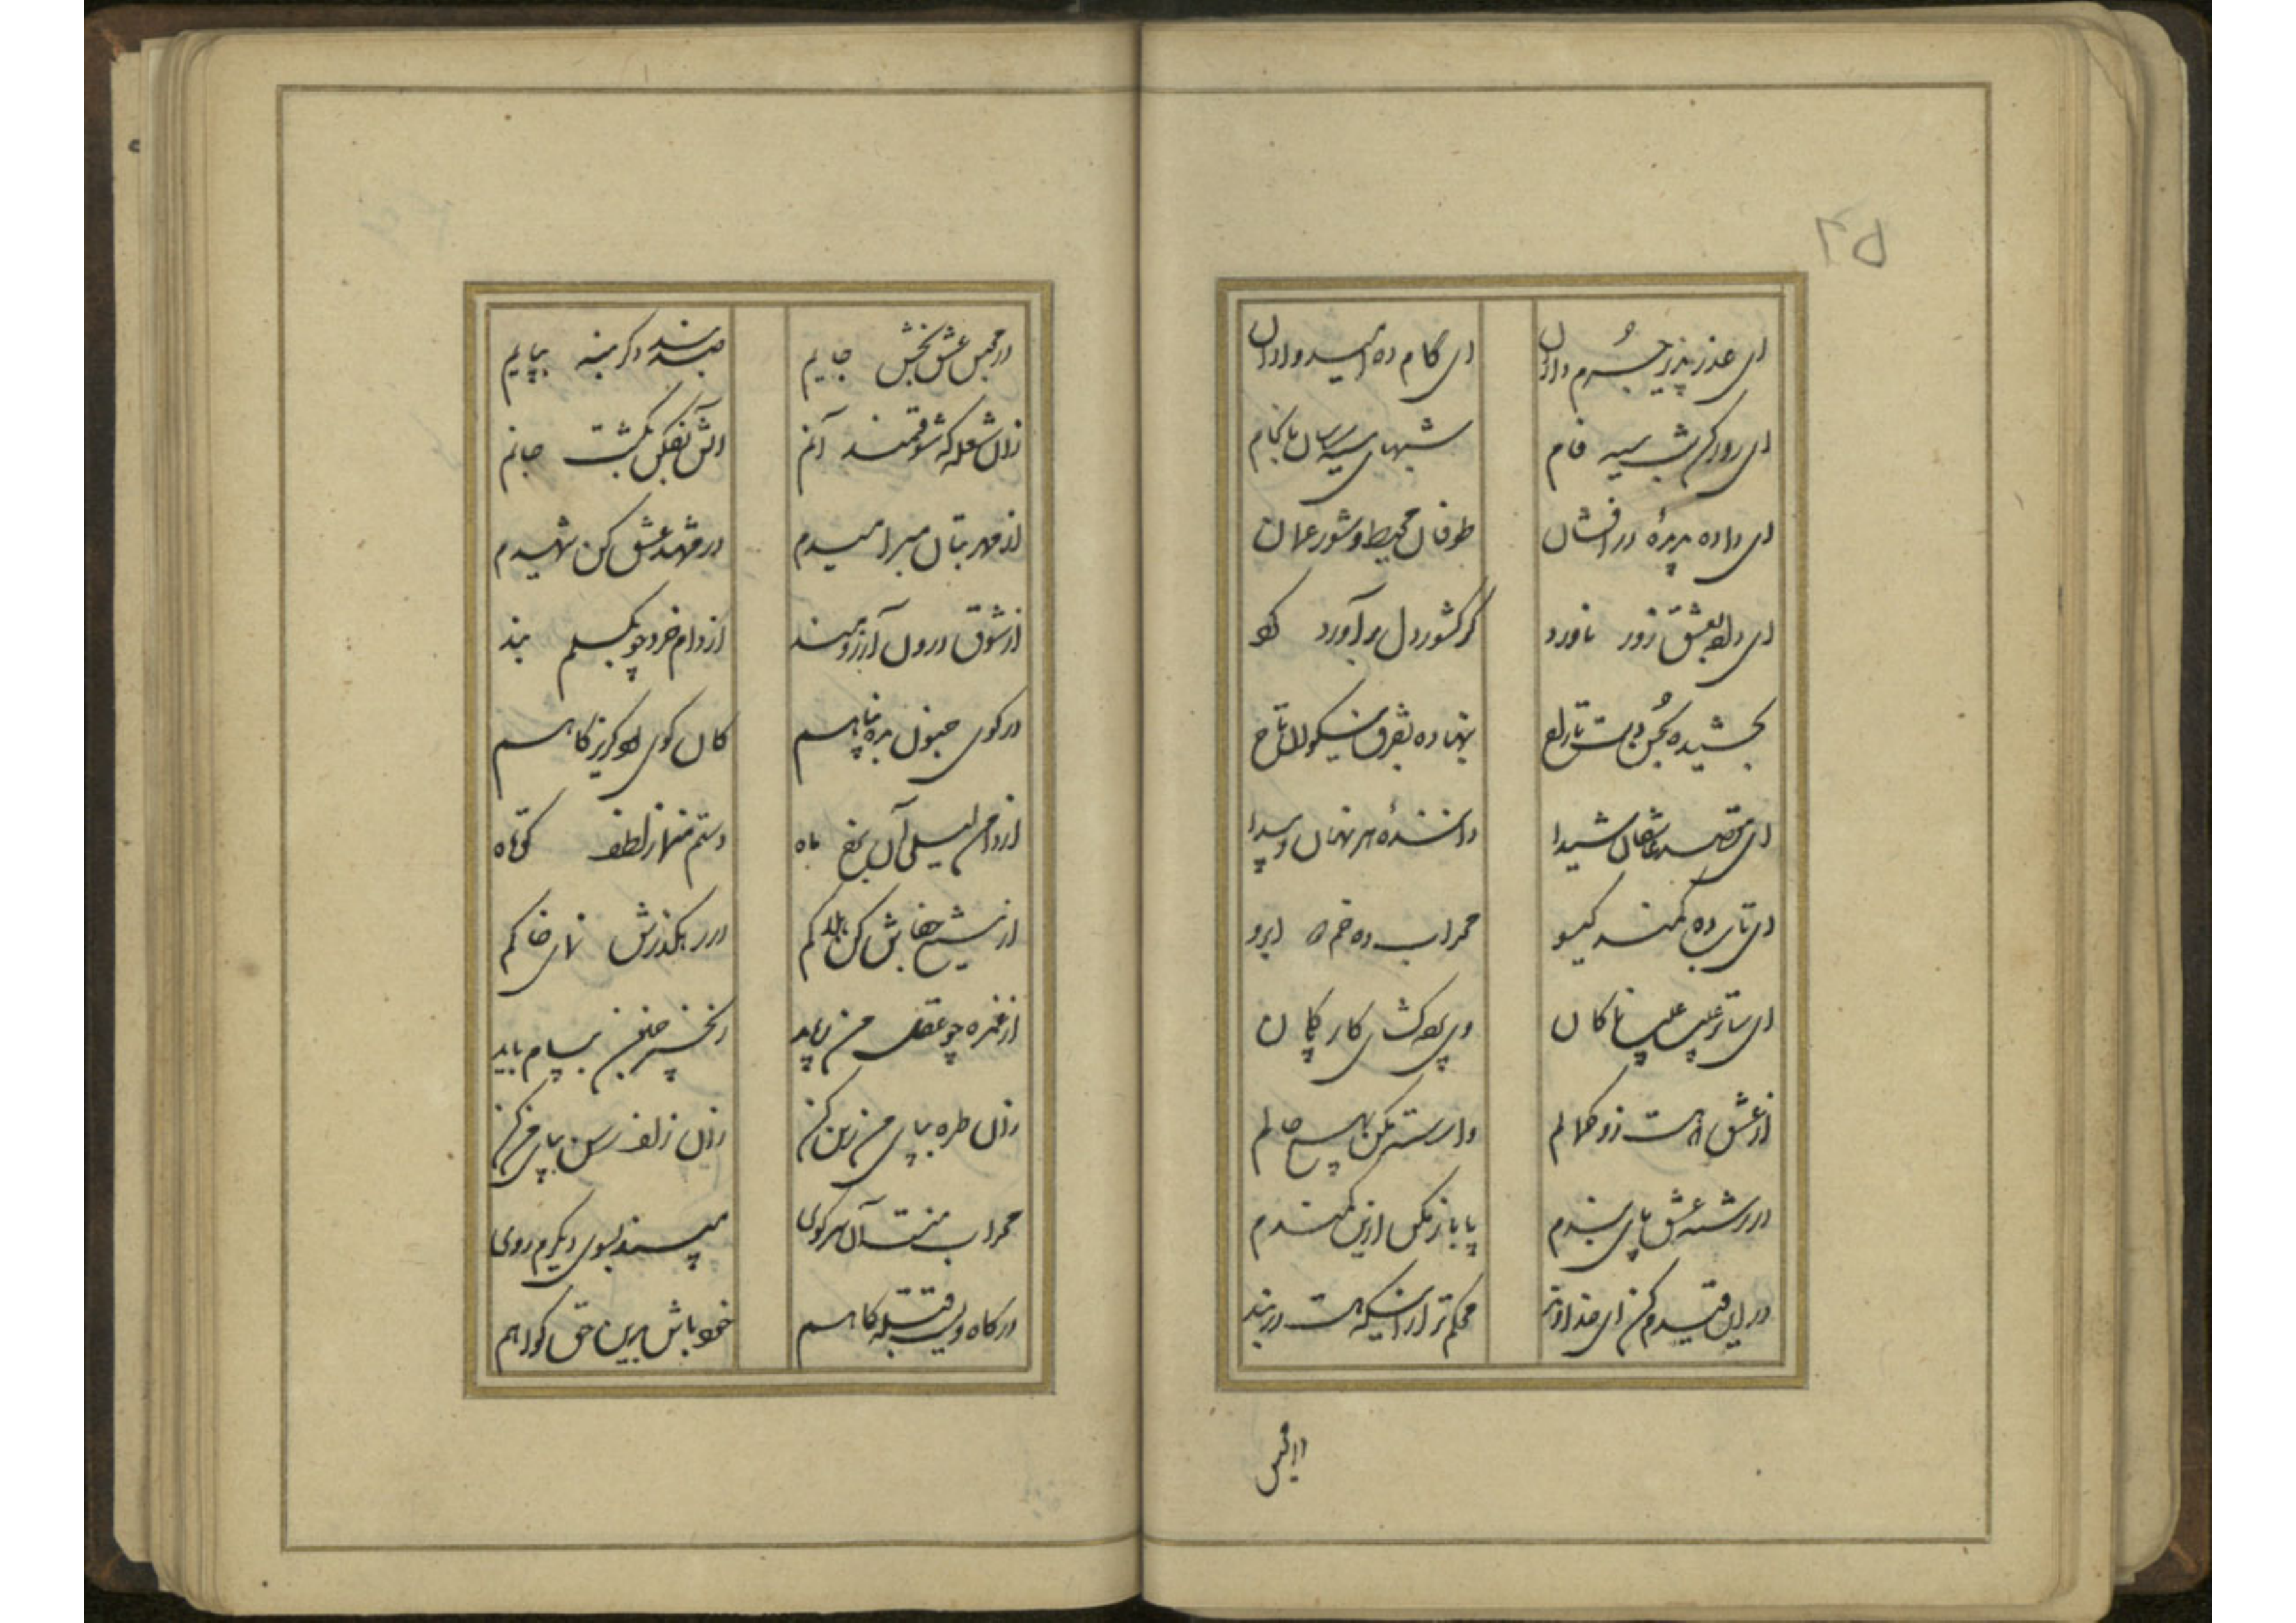 ۳۵
ای عذر پذیر جرم داران ای کام ده امیدواران
ای روز کن شب سیه فام شبهای سیه رسان بانجام
ای داده بدیدهٔ در افشان طوفان محیط و شور عمان
ای داده بعشق زور ناورد کز کشور دل بر آورد گرد
بخشیده بحسن دست تاراج بنهاده بفرق نیکوان تاج
ای مقصد عاشقان شیدا دانندهٔ هر نهان و پیدا
ای تاب ده کمند گیسو محراب ده خم دو ابرو
ای ساتر عیب عیب ناکان وی پرده گشای کار پاکان
از عشق تراست ذوق حالم وارسته مکن بهیچ حالم
در رشته عشق پای بندم پا باز مکن ازین کمندم
در این قیدم کن ای خداوند محکم‌تر از اینکه هست در بند
در مجلس
در محبس عشق بخش جایم صد بند دگر بنه بپایم
زان شعله که شوقمند آنم آتش بفکن بکشت جانم
از مهر بتان مبر امیدم در مشهد عشق کن شهیدم
از شوق درون آرزومند از دام خرد چو بگسلم بند
در کوی جنون بده پناهم کان کوی بود گریزگاهم
از دامن لیلی آن رخ ماه دستم منما ز لطف کوتاه
از تیغ جفاش کن هلاکم در رهگذرش نمای خاکم
از غمزه چو عقل من رباید زنجیر جنون بپام باید
زان طره بپای من رسن کن زان زلف رسن بپای من کن
محراب منست آن سر کوی مپسند بسوی دیگرم روی
درگاه ویست قبله‌گاهم خود باش برین حق گواهم